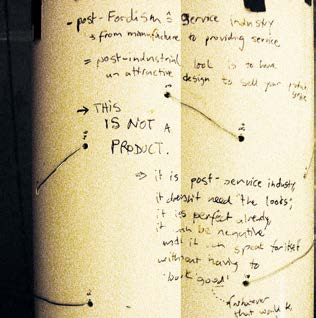 - post-Fordism ≙ service industry
↳ from manufacture to providing service
= post-industrial look is to have
an attractive design to sell your
→ THIS
IS NOT A
PRODUCT.
⇒ it is post-service industry
it doesn't need 'the looks',
it is perfect already
it can be negative
and it can speak for itself
without having to
'look good'
whatever
that would be